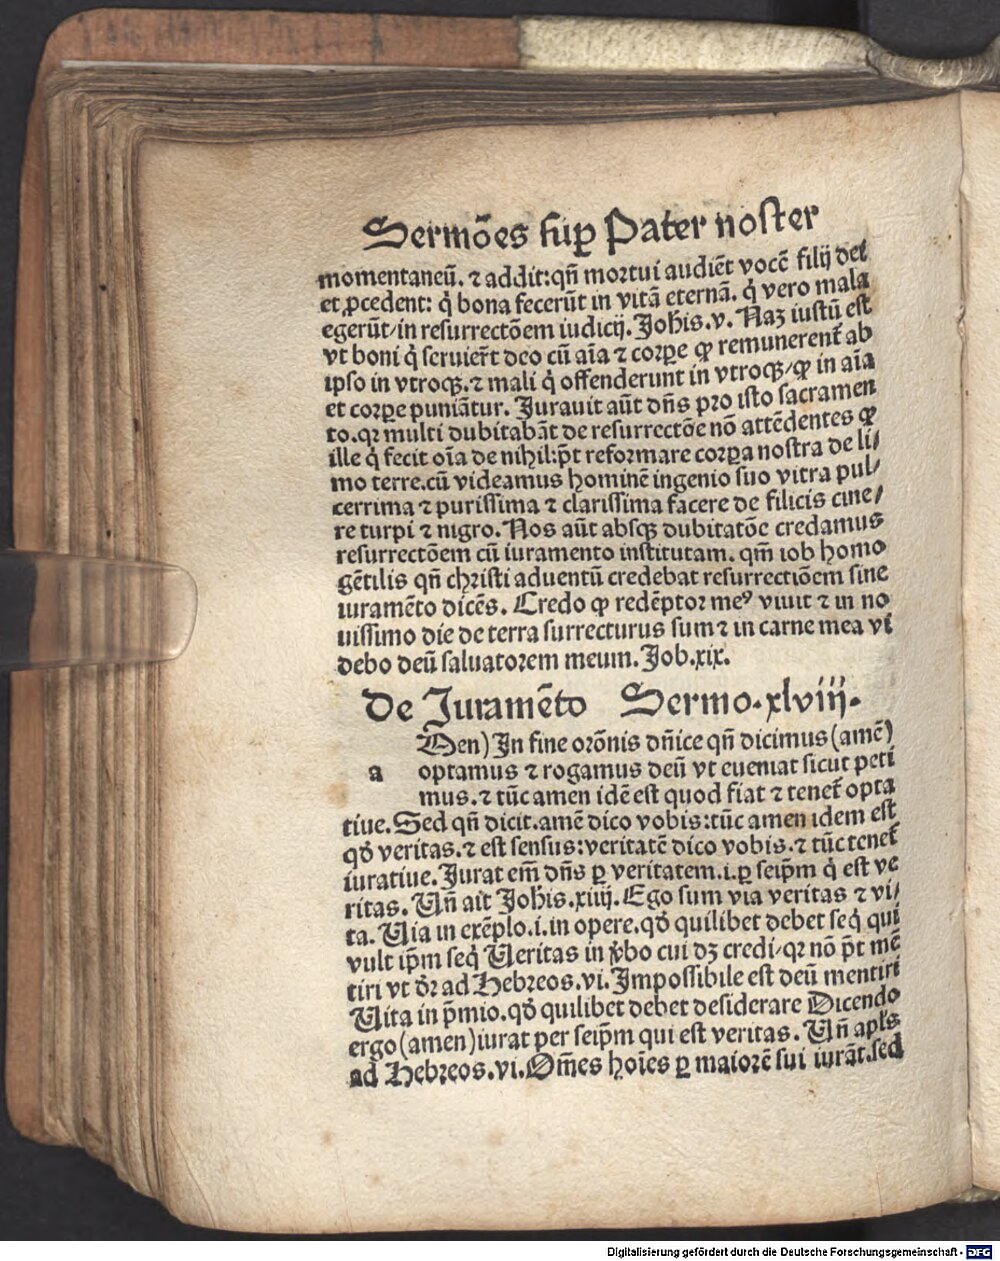 Sermões suꝑ Pater noster
momentaneū. ⁊ addit: qñ mortui audiēt vocē filij dei
et ꝓcedent: q̇ bona fecerūt in vitā eternā. q̇ vero mala
egerūt/ in resurrectōem iudicij. Joh̄is .v. Naꝫ iustū est
vt boni q̇ seruier̄t deo cū aīa ⁊ corꝑe ꝙ remunerent̄ ab
ipso in vtroqꝫ. ⁊ mali q̇ offenderunt in vtroqꝫ/ ꝙ in aīa
et corꝑe puniātur. Jurauit aūt dn̄s pro isto sacramen
to. qꝛ multi dubitabāt de resurrectōe nō attēdentes ꝙ
ille q̇ fecit oīa de nihil: pt̄ reformare corꝑa nostra de li/
mo terre. cū videamus hominē ingenio suo vitra pul/
cerrima ⁊ purissima ⁊ clarissima facere de filicis cine/
re turpi ⁊ nigro. Nos aūt absqꝫ dubitatōe credamus
resurrectōem cū iuramento institutam. qm̄ iob homo
gētilis qñ christi aduentū credebat resurrectiōem sine
iuramēto dicēs. Credo ꝙ redēptor meꝰ viuit ⁊ in no
uissimo die de terra surrecturus sum ⁊ in carne mea vi
debo deū saluatorem meum. Job .xix.
De Juramēto Sermo .xlviij.
Men) In fine orōnis dn̄ice qñ dicimus (amē)
a optamus ⁊ rogamus deū vt eueniat sicut peti
mus. ⁊ tūc amen idē est quod fiat ⁊ tenet̄ opta
tiue. Sed qñ dicit. amē dico vobis: tūc amen idem est
qd̄ veritas. ⁊ est sensus: veritatē dico vobis. ⁊ tūc tenet̄
iuratiue. Jurat em̄ dn̄s ꝑ veritatem .i. ꝑ seip̄m q̇ est ve
ritas. Un̄ ait Joh̄is .xiiij. Ego sum via veritas ⁊ vi/
ta. Uia in exēplo .i. in opere. qd̄ quilibet debet seq̇ qui
vult ip̄m seq̇ Ueritas in v̄bo cui dꝫ credi/ qꝛ nō pt̄ mē
tiri vt dr̄ ad Hebreos .vi. Jmpossibile est deū mentiri
Uita in p̄mio. qd̄ quilibet debet desiderare Dicendo
ergo (amen) iurat per seip̄m qui est veritas. Un̄ apl̄s
ad Hebreos .vi. Om̄es hoīes ꝑ maiorē sui iurāt. sed
Digitalisierung gefördert durch die Deutsche Forschungsgemeinschaft - DFG